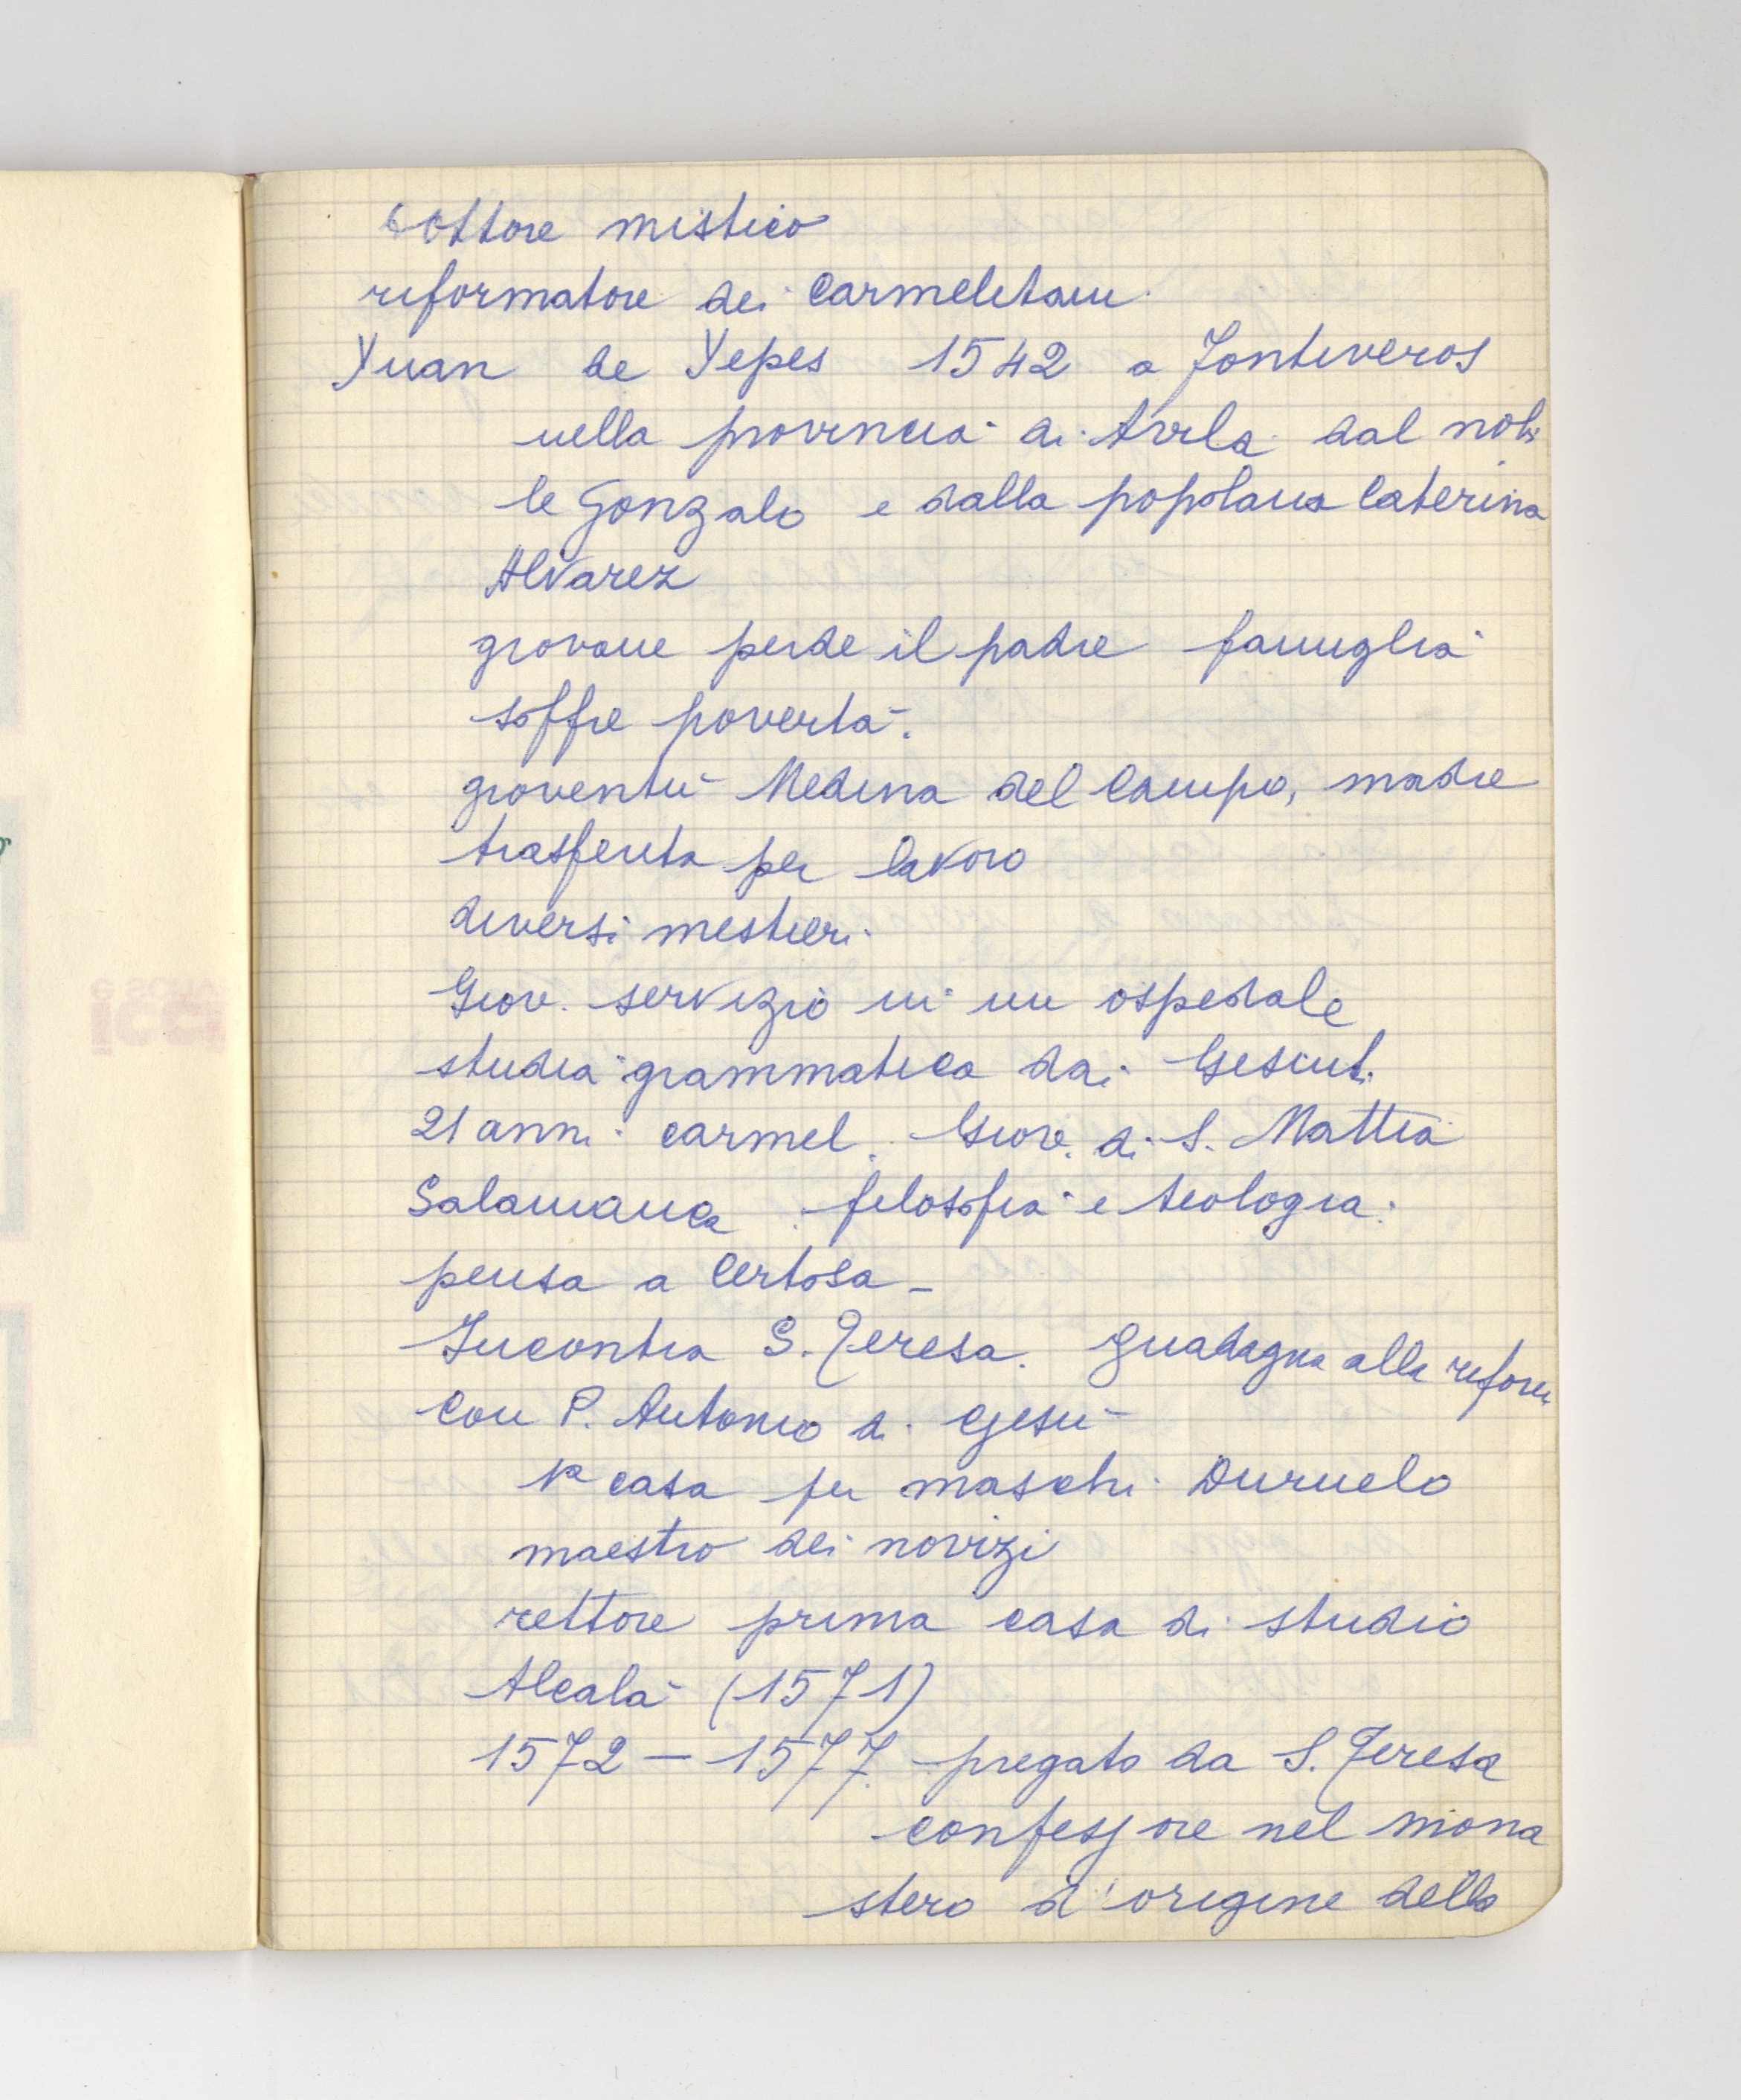 dottore mistico
riformatore dei Carmelitani
Yuan de Yepes 1542 a Fontiveros
nella provincia di Avila dal nobi
le Gonzalo e dalla popolana Caterina
Alvarez
giovane perde il padre famiglia
soffre povertà.
gioventù Medina del Campo, madre
trasferita per lavoro
diversi mestieri
Giov. servizio in un ospedale
studia grammatica dai Gesuiti
21 anni carmel. Giov. di S. Mattia
Salamanca filosofia e teologia.
pensa a Certosa -
Incontra S. Teresa. guadagna alla riforma
Con P. Antonio di Gesù
1ª casa per maschi Duruelo
maestro dei novizi
rettore prima casa di studio
Alcalà (1571)
1572 - 1577 pregato da S. Teresa
confessore nel mona
stero d'origine della